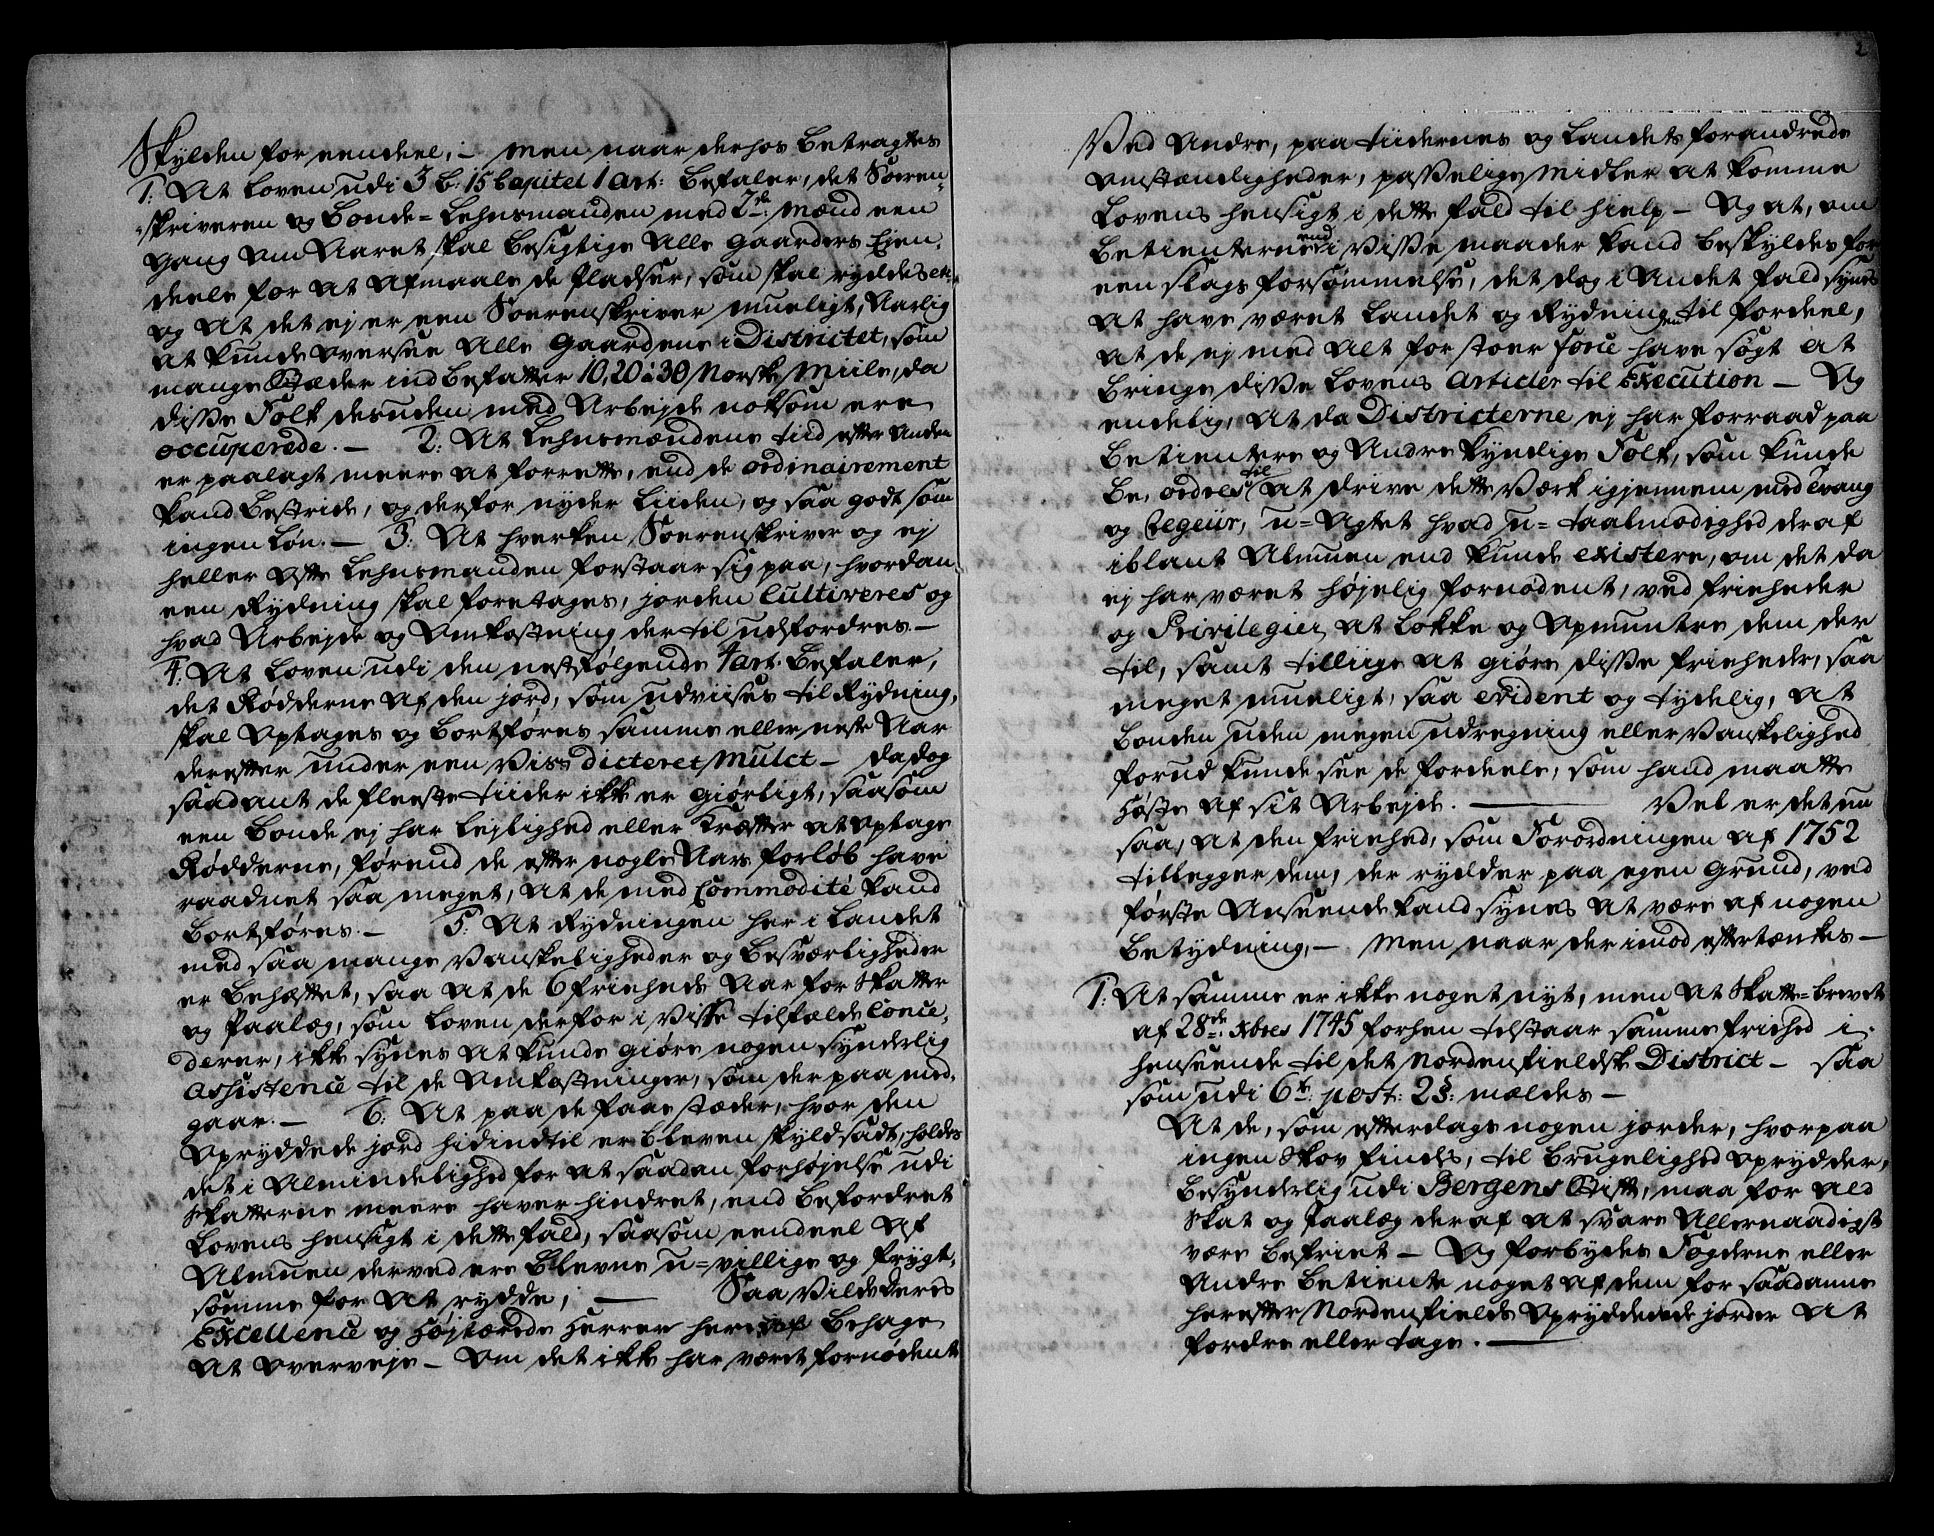 Skylden for een deel, – Men naar derhos betragtes
1: At Loven udi 3 B: 15 Capitel 1 Art: befaler, det Soeren-
skriveren og Bonde-Lehnsmanden med 2de: Mænd een
gang om Aaret skal besigtige alle Gaarders Ejen-
deele for at afmaale de Pladser, som skal ryddes etc.
og at det ej er een Soerenskriver mueligt, Aarlig
at kunde oversee alle Gaardene i Districtet, som
mange Stæder indbefatter 10, 20 à 30 Norske Miile, da
disse Folk desuden med Arbejde noksom ere
occuperede. – 2: At Lehnsmændene tiid efter anden
er paalagt meere at forrette, end de ordinairement
kand bestride, og derfor nyder liiden, og saa godt som
ingen Løn. – 3: At hverken Soerenskriver og ej
heller ofte Lehnsmanden forstaar sig paa, hvordan
een Rydning skal foretages, jorden Cultiveres og
hvad Arbejde og Omkostning der til udfordres –
4: At Loven udi den nestfølgende 4 Art. befaler,
det Rødderne af den jord, som udviises til Rydning,
skal optages og bortføres samme eller neste Aar
derefter under een viss dicteret Mulct – da dog
saadant de fleeste tiider ikke er giørligt, saasom
een Bonde ej har lejlighed eller Kræfter at optage
Rødderne, førend de efter nogle Aars forløb have
raadnet saa meget, at de med Commodité kand
bortføres. – 5: At Rydningen her i Landet
med saa mange Vanskeligheder og besværligheder
er behæftet, saa at de 6 friheds Aar for Skatter
og Paalæg, som Loven derfor i visse tilfælde Conce-
derer, ikke synes at kunde giøre nogen synderlig
Assistence til de Omkostninger, som der paa med-
gaar. – 6: At paa de faae stæder, hvor den
Opryddede jord hidindtil er bleven skyldsadt, holdes
det i Almindelighed for at saadan forhøjelse udi
Skatterne meere haver hindret, end befordret
Lovens hensigt i dette fald, saasom een deel af
Almuen derved ere blevne u-villige og frygt-
somme for at rydde, – Saa vilde Deres
Excellence og Højtærede Herrer heraf behage
at overveje – Om det ikke har været fornødent
2
Ved andre, paa tiidernes og Landets forandrede
Omstændigheder, passelige Midler at komme
Lovens hensigt i dette fald til hielp – Og at, om
Betienterne end i visse maader kand beskyldes for
een slags forsømmelse, det dog i andet fald synes
at have været Landet og Rydningen til fordeel,
at de ej med alt for stoer force have søgt at
bringe disse Lovens Articler til Execution – Og
endelig, at da Districterne ej har forraad paa
Betientere og andre kyndige Folk, som kunde
be-ordres til at drive dette Værk igjennem med Tvang
og Regeur, u-agtet hvad u-taalmodighed deraf
iblant Almuen end kunde existere, om det da
ej har været højelig fornødent, ved friheder
og Privilegier at lokke og opmuntre dem der
til, samt tilliige at giøre disse friheder, saa
meget mueligt, saa evident og tydelig, at
Bonden uden megen udregning eller Vanskelighed
forud kunde see de fordeele, som hand maatte
høste af sit Arbejde. – Vel er det nu
saa, at den frihed, som Forordningen af 1752
tillegger dem, der rydder paa egen Grund, ved
første Anseende kand synes at være af nogen
betydning, – Men naar derimod eftertænkes –
1: At samme er ikke noget nyt, men at Skatte-brevet
af 28de: Xbres 1745 forhen tilstaar samme frihed i
henseende til det Nordenfieldske District – saa
som udi 6te: post: 2 §: meldes –
At de, som efterdags nogen jorder, hvorpaa
ingen Skov findes, til brugelighed oprydder,
besynderlig udi Bergens Stift, maa for ald
Skat og Paalæg deraf at svare Allernaadigst
være befriet – Og forbydes Fogderne eller
andre betiente noget af dem for saadanne
herefter Nordenfields Opryddede jorder at
fordre eller tage. –